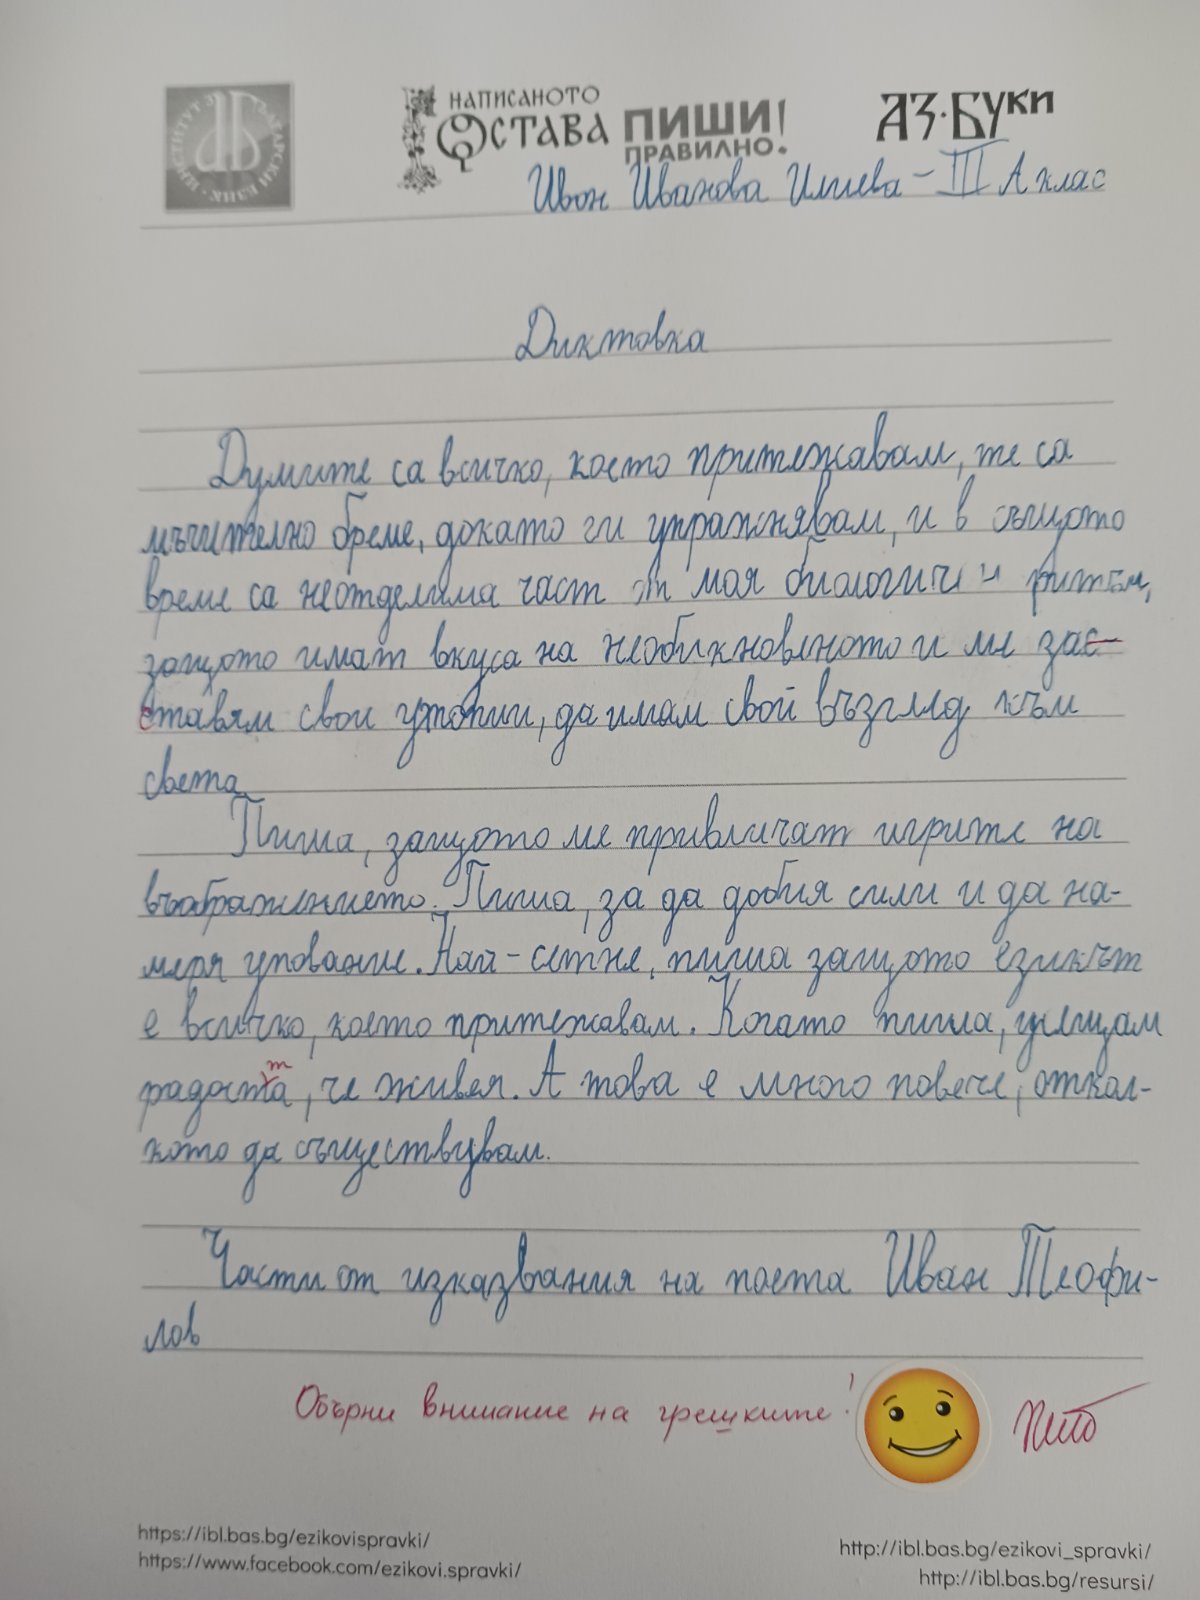 ИНСТИТУТ ЗА БЪЛГАРСКИ ЕЗИК
НАПИСАНОТО
ОСТАВА
ПИШИ
ПРАВИЛНО!
АЗ·БУКИ
Ивон Иванова Илиева – III А клас
Диктовка
Думите са всичко, което притежавам, те са
мъчително бреме, докато ги упражнявам, и в същото
време са неотделима част от моя биологичен ритъм,
защото имат вкуса на необикновеното и ме зас-
тавям свои утопии, да имам свой възглед към
света.
Пиша, защото ме привличат игрите на
въображението. Пиша, за да добия сили и да на-
меря упование. Най-сетне, пиша защото езикът
е всичко, което притежавам. Когато пиша, усещам
радостта, че живея. А това е много повече, откол-
кото да съществувам.
Части от изказвания на поета Иван Теофи-
лов
Обърни внимание на грешките!
https://ibl.bas.bg/ezikovispravki/
https://www.facebook.com/ezikovi.spravki/
http://ibl.bas.bg/ezikovi_spravki/
http://ibl.bas.bg/resursi/